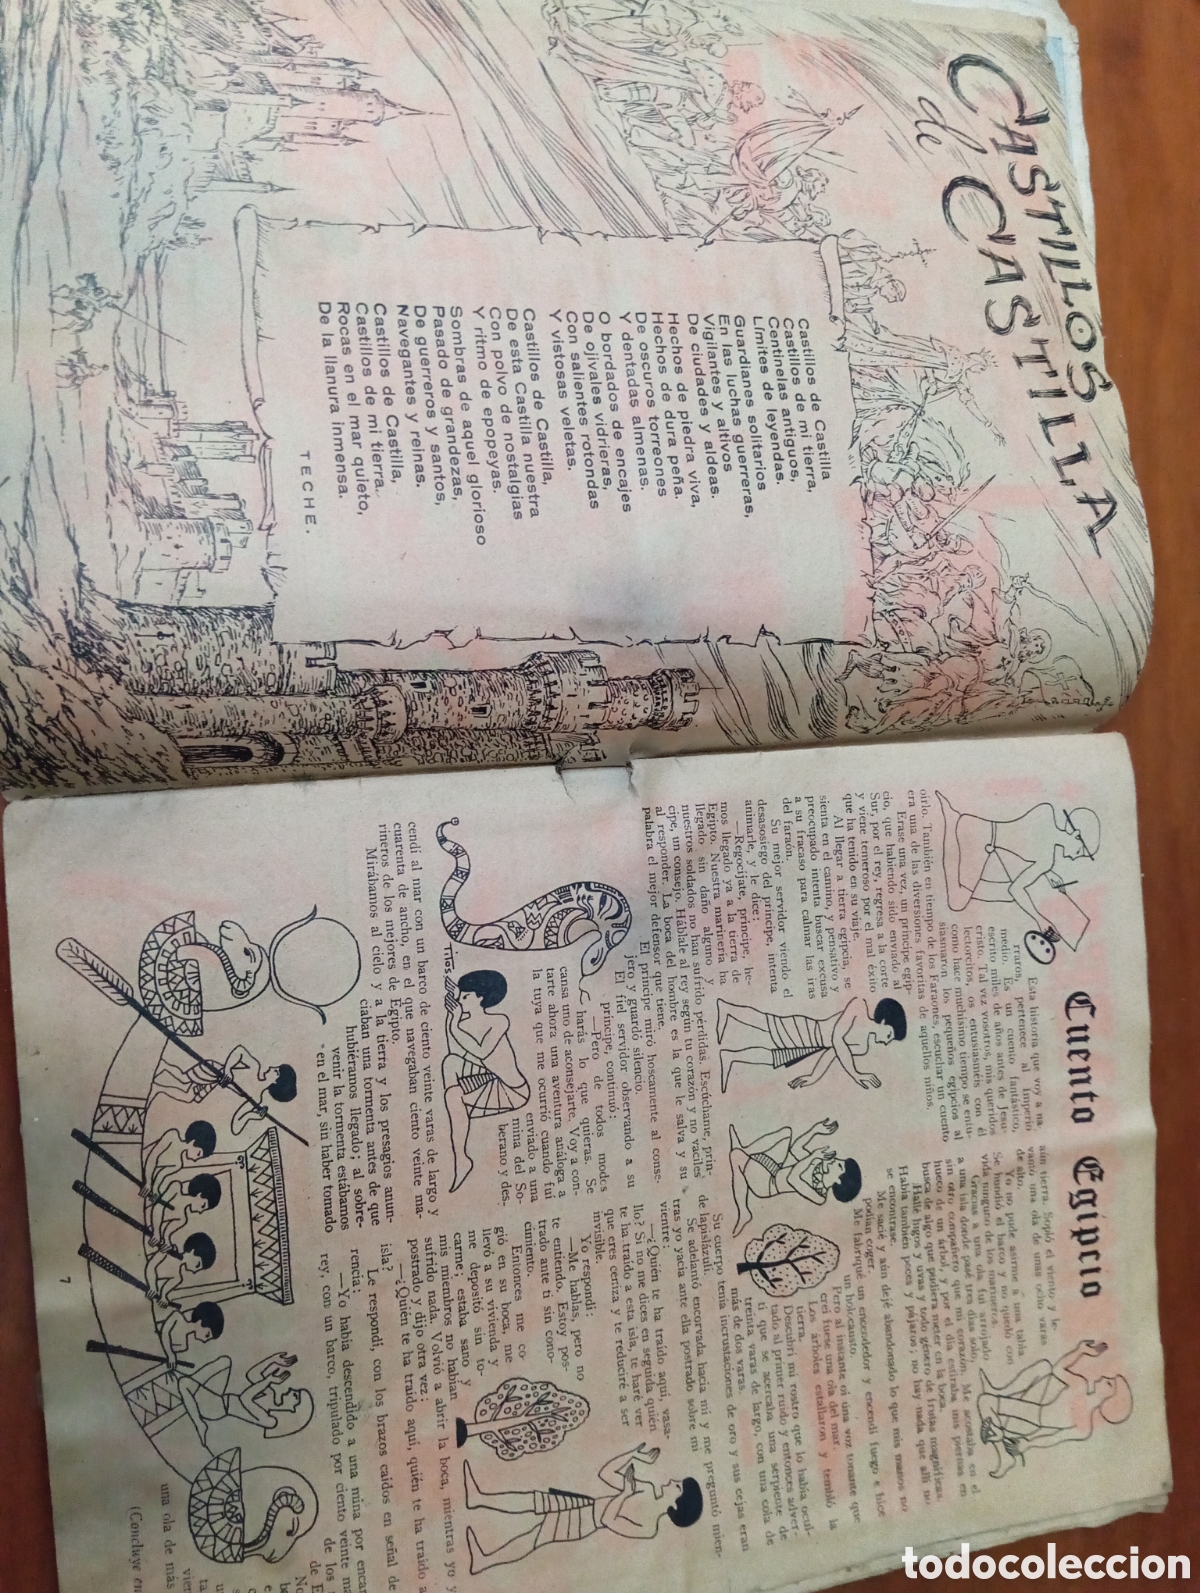 CASTILLOS
de CASTILLA
Castillos de Castilla
Castillos de mi tierra,
Centinelas antiguos,
Límites de leyendas.
Guardianes solitarios
En las luchas guerreras,
Vigilantes y altivos
De ciudades y aldeas.
Hechos de piedra viva,
Hechos de dura peña.
De oscuros torreones
Y dentadas almenas.
O bordados de encajes
De ojivales vidrieras,
Con salientes rotondas
Y vistosas veletas.
Castillos de Castilla,
De esta Castilla nuestra
Con polvo de nostalgias
Y ritmo de epopeyas.
Sombras de aquel glorioso
Pasado de grandezas,
De guerreros y santos,
Navegantes y reinas.
Castillos de Castilla,
Castillos de mi tierra.
Rocas en el mar quieto,
De la llanura inmensa.
TECHE.
Cuento Egipcio
Esta historia que voy a na-
rraros, pertenece al Imperio
medio. Es un cuento fantástico,
escrito miles de años antes de Jesu-
cristo. Tal vez vosotros, mis queridos
lectorcitos, os entusiasméis con él
como hace muchísimo tiempo se entu-
siasmaron los pequeños egipcios al
oírlo. También en tiempo de los Faraones, escuchar un cuento
era una de las diversiones favoritas de aquellos niños.
Erase una vez, un príncipe egip-
cio, que habiendo sido enviado al
Sur, por el rey, regresa a la corte
y viene temeroso por el mal éxito
que ha tenido en su viaje.
Al llegar a tierra egipcia, se
sienta en el camino, y pensativo y
preocupado intenta buscar excusa
a su fracaso para calmar las iras
del faraón.
Su mejor servidor viendo el
desasosiego del príncipe, intenta
animarle, y le dice:
—Regocíjate, príncipe, he-
mos llegado ya a la tierra de
Egipto. Nuestra marinería ha
llegado sin daño alguno y
nuestros soldados no han sufrido pérdidas. Escúchame, prín-
cipe, un consejo. Háblale al rey según tu corazón y no vaciles
al responder. La boca del hombre es la que le salva y su
palabra el mejor defensor que tiene.
El príncipe miró hoscamente al conse-
jero y guardó silencio.
El fiel servidor observando a su
príncipe, continuó:
—Pero de todos modos
harás lo que quieras. Se
cansa uno de aconsejarte. Voy a con-
tarte ahora una aventura análoga a
la tuya que me ocurrió cuando fuí
enviado a una
mina del So-
berano y des-
cendí al mar con un barco de ciento veinte varas de largo y
cuarenta de ancho, en el que navegaban ciento veinte ma-
rineros de los mejores de Egipto.
Mirábamos al cielo y a la tierra y los presagios anun-
ciaban una tormenta antes de que
hubiéramos llegado; al sobre-
venir la tormenta estábamos
en el mar, sin haber tomado
aún tierra. Sopló el viento y le-
vantó una ola de unas ocho varas
de alto.
Yo no pude asirme a una tabla.
Se hundió el barco y no quedó con
vida ninguno de los marineros.
Gracias a una ola fuí arrojado
a una isla donde pasé tres días solo,
sin otro compañero que mi corazón. Me acostaba en el
hueco de un árbol, y por el día estiraba mis piernas en
busca de algo que pudiera meter en la boca.
Hallé higos y uvas y todo género de frutas magníficas.
Había también peces y pájaros; no hay nada que allí no
se encontrase.
Me sacié y aún dejé abandonado lo que mis manos no
podían coger.
Me fabriqué un encendedor y encendí fuego e hice
un holocausto.
Pero al instante oí una voz tonante que
creí fuese una ola del mar.
Los árboles estallaron y tembló la
tierra.
Descubrí mi rostro que lo había ocul-
tado al primer ruido y entonces adver-
tí que se acercaba una serpiente de
treinta varas de largo, con una cola de
más de dos varas.
Su cuerpo tenía incrustaciones de oro y sus cejas eran
de lapislázuli.
Se adelantó encorvada hacia mí y me preguntó mien-
tras yo yacía ante ella postrado sobre mi
vientre:
—¿Quién te ha traído aquí, vasa-
llo? Si no me dices en seguida quién
te ha traído a esta isla, te haré ver
que eres ceniza y te reduciré a ser
invisible.
Yo respondí:
—Me hablas, pero no
te entiendo. Estoy pos-
trado ante ti sin cono-
cimiento.
Entonces me co-
gió en su boca, me
llevó a su vivienda y
me depositó sin to-
carme; estaba sano y
mis miembros no habían
sufrido nada. Volvió a abrir la boca, mientras yo y
postrado y dijo otra vez:
—¿Quién te ha traído aquí, quién te ha traído a
isla?
Le respondí, con los brazos caídos en señal de
rencia:
—Yo había descendido a una mina por encar
rey, con un barco, tripulado por ciento veinte ma
de los
de E
una ola de más
(Concluye en
Tres
7
todocoleccion